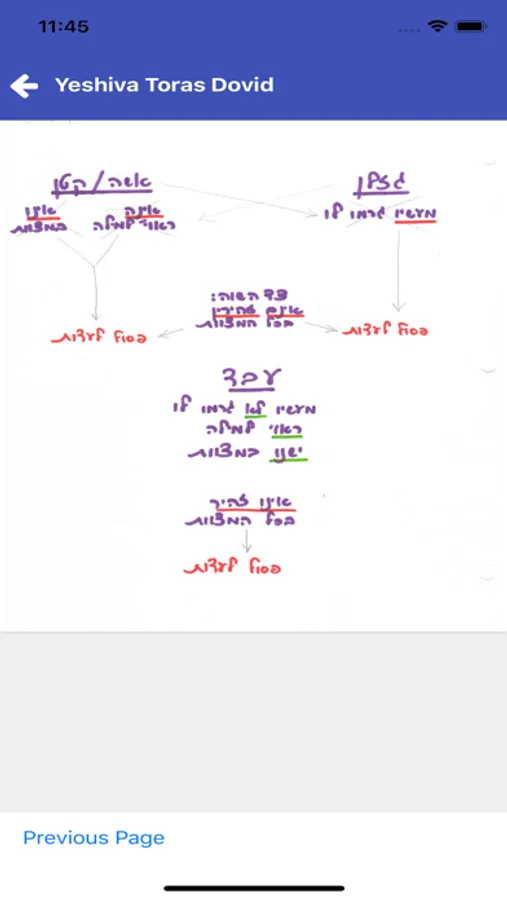 11:45
Yeshiva Toras Dovid
גזלן
מעשיו גרמו לו
פסול לעדות
אשה / קטן
אינה
ראוי למילה
אינו
במצוות
פסול לעדות
צד השוה:
אינם זהירין
בכל המצוות
עבד
מעשיו לא גרמו לו
ראוי למילה
ישנו במצוות
אינו זהיר
בכל המצוות
פסול לעדות
Previous Page